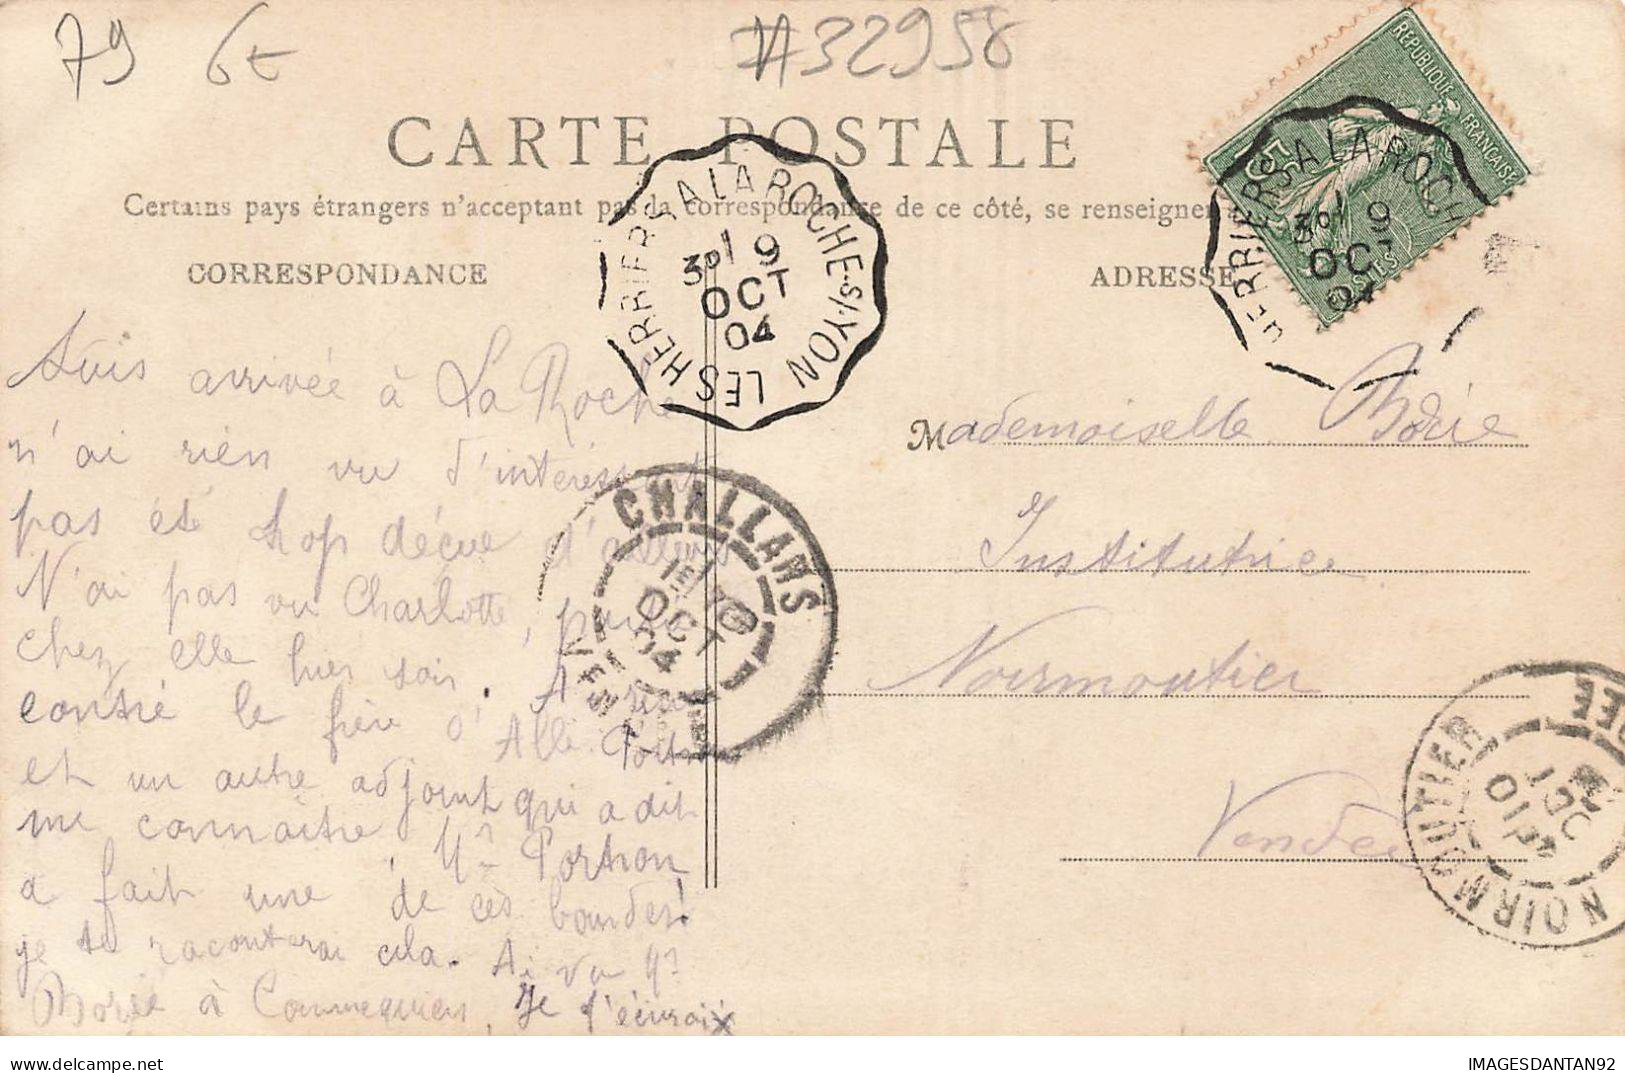 79 6€ #32958
CARTE POSTALE
Certains pays étrangers n'acceptent pas la correspondance de ce côté, se renseigner
CORRESPONDANCE
ADRESSE
REPUBLIQUE FRANÇAISE
15
POSTES
LES HERBIERS A LA ROCHE-S/-YON
3º/ 9
OCT
04
HERBIERS A LA ROCH
3º/ 9
OC
04
Suis arrivée à La Roche
n'ai rien vu d'intéressant
pas été trop déçue d'ailleurs
N'ai pas vu Charlotte,
chez elle hier soir. Ai ren
contré le frère d'
et un autre adjoint qui a dit
me connaître. Mr Portron
a fait une de ces bourdes!
je te raconterai cela. Ai vu Mr
Borie à Commequiers. Je t'écrirai
CHALLANS
VENDEE
OCT
04
Mademoiselle Borie
Institutrice
Noirmoutier
Vendée
NOIRMOUTIER
VENDEE
10
OCT
04
IMAGESDANTAN92